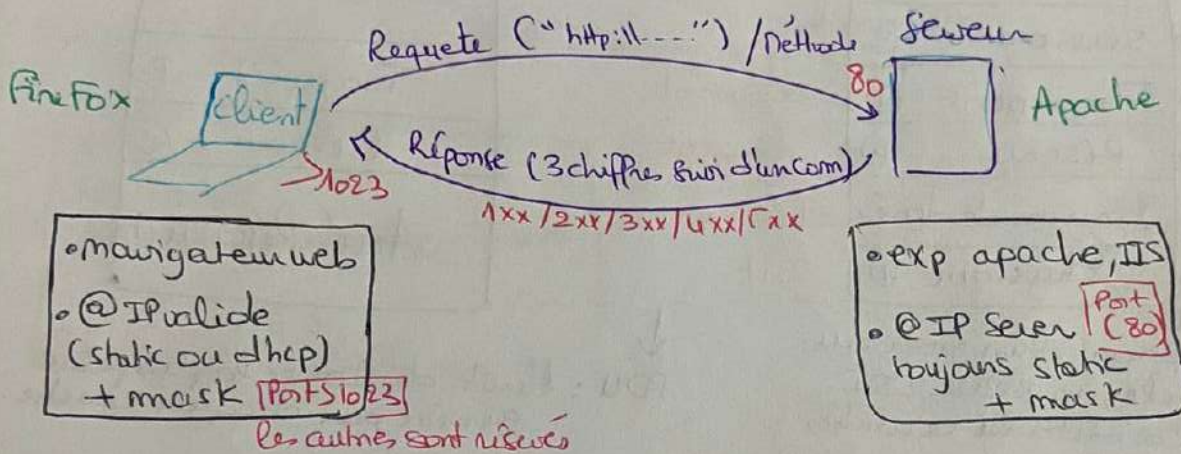 Requete ("http://----") / Méthode
Serveur
FireFox
client
80
Apache
Réponse (3 chiffres suivi d'un com)
>1023
1xx / 2xx / 3xx / 4xx / 5xx
• navigateur web
• @IP valide
(static ou dhcp)
+ mask Port>1023
les autres sont réservés
• exp apache, IIS
• @IP Server Port (80)
toujours static
+ mask